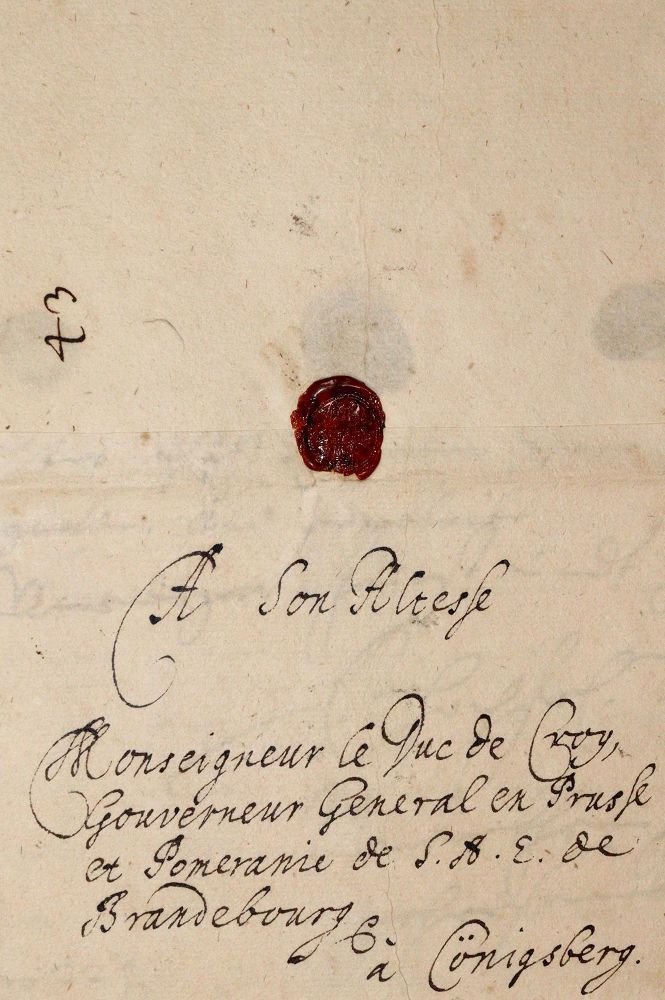 43
A Son Altesse
Monseigneur le Duc de Croy,
Gouverneur General en Prusse
et Pomeranie de S. A. E. de
Brandebourg
à Cönigsberg.